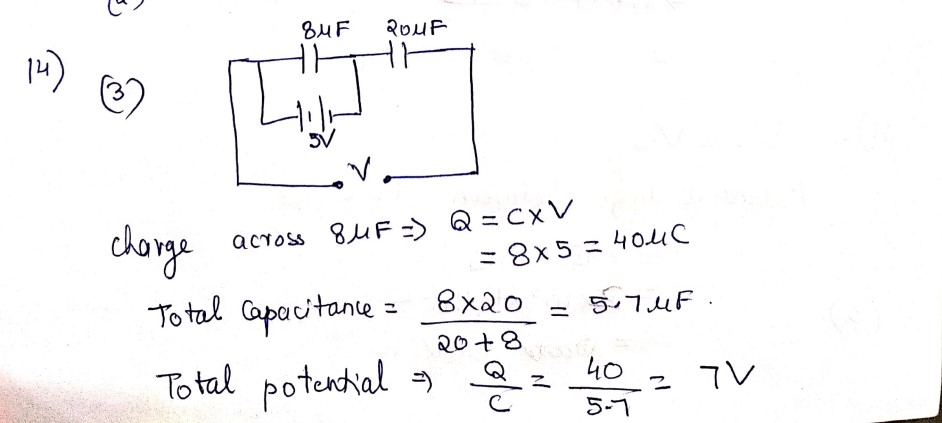 (a)
8μF 20μF
14) (3)
5V
V
charge across 8μF ⇒ Q = C×V
= 8×5 = 40μC
Total Capacitance = 8×20 / 20+8 = 5.7μF.
Total potential ⇒ Q / C = 40 / 5.7 = 7V